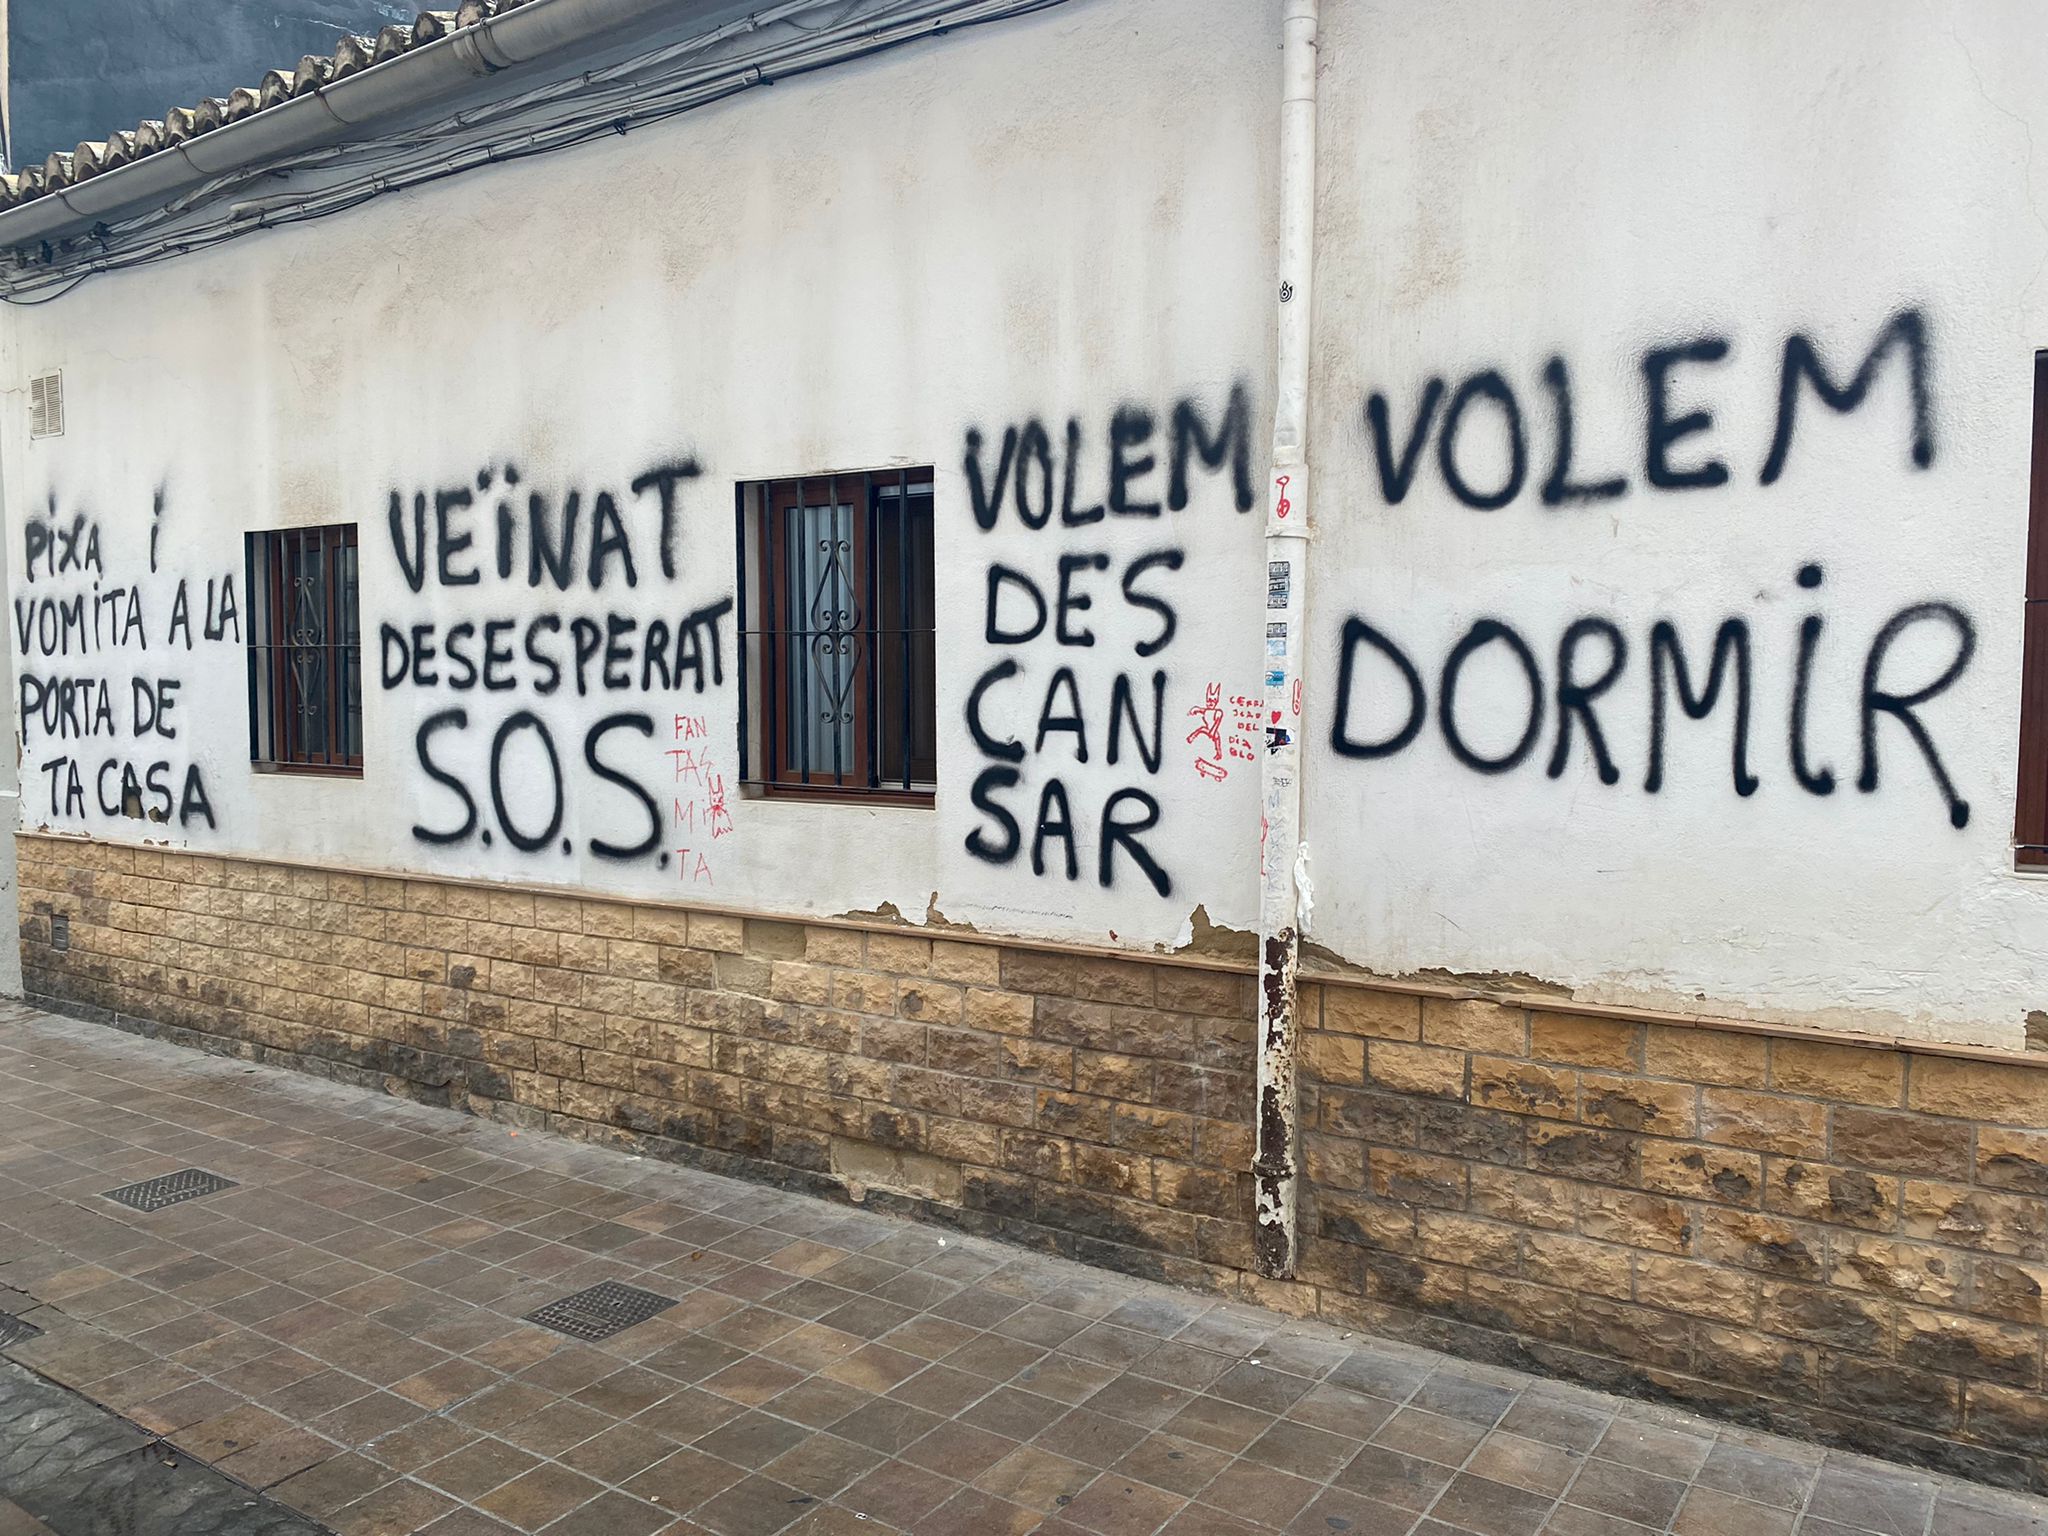 PiXA i
VOMiTA A LA
PORTA DE
TA CASA
VEÏNAT
DESESPERAT
S.O.S.
FAN
TAS
Mi
TA
VOLEM
DES
CAN
SAR
DEL
DIA
BLO
VOLEM
DORMiR